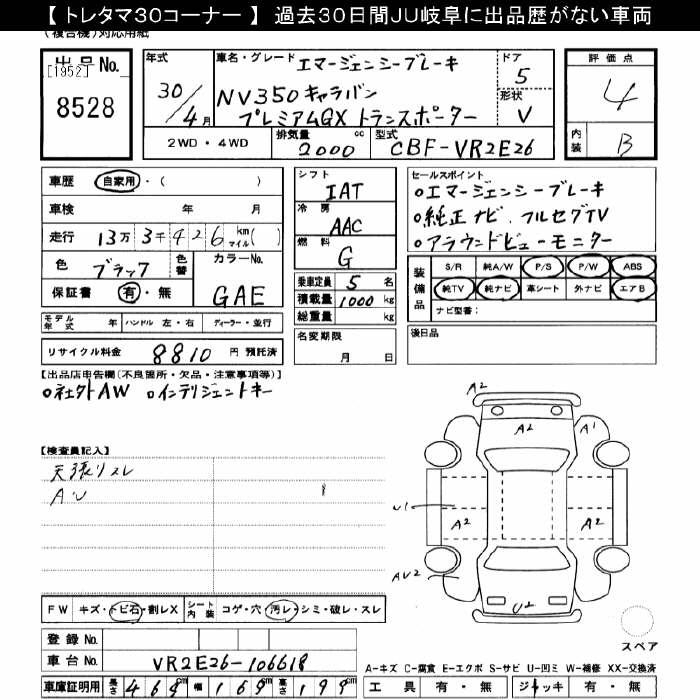 【 トレタマ30コーナー 】 過去30日間JU岐阜に出品歴がない車両
(複合機)対応用紙
出品No.
[1952]
8528
年式
30/4月
車名・グレード エマージェンシーブレーキ
NV350キャラバン
プレミアムGX トランスポーター
ドア
5
形状
V
評価点
4
内装
B
2WD・4WD
排気量 2000cc
型式 CBF-VR2E26
車歴 自家用・( )
車検 年 月
走行 13万3千426km マイル( )
色 ブラック 色替 カラーNo.
保証書 有・無 GAE
モデル年式 年 ハンドル 左・右 ディーラー・並行
リサイクル料金 8810 円 預託済
シフト
IAT
冷房
AAC
燃料
G
乗車定員 5 名
積載量 1000 kg
総重量 kg
名変期限
月 日
セールスポイント
○エマージェンシーブレーキ
○純正ナビ、フルセグTV
○アラウンドビューモニター
装備品
S/R 純A/W P/S P/W ABS
純TV 純ナビ 革シート 外ナビ エアB
ナビ型番:
後日品
【出品店申告欄(不良箇所・欠品・注意事項等)】
○社外AW ○インテリジェントキー
【検査員記入】
天張リスレ
AU
A2
A2
A1
U1
A2
A2
AU2
U2
スペア
FW キズ・トビ石・割レX シート内装 コゲ・穴・汚レ・シミ・破レ・スレ
登録No.
車台No. VR2E26-106618
車庫証明用 長さ 469cm 幅 169cm 高さ 199cm
A-キズ C-腐食 E-エクボ S-サビ U-凹ミ W-補修 XX-交換済
工具 有・無 ジャッキ 有・無